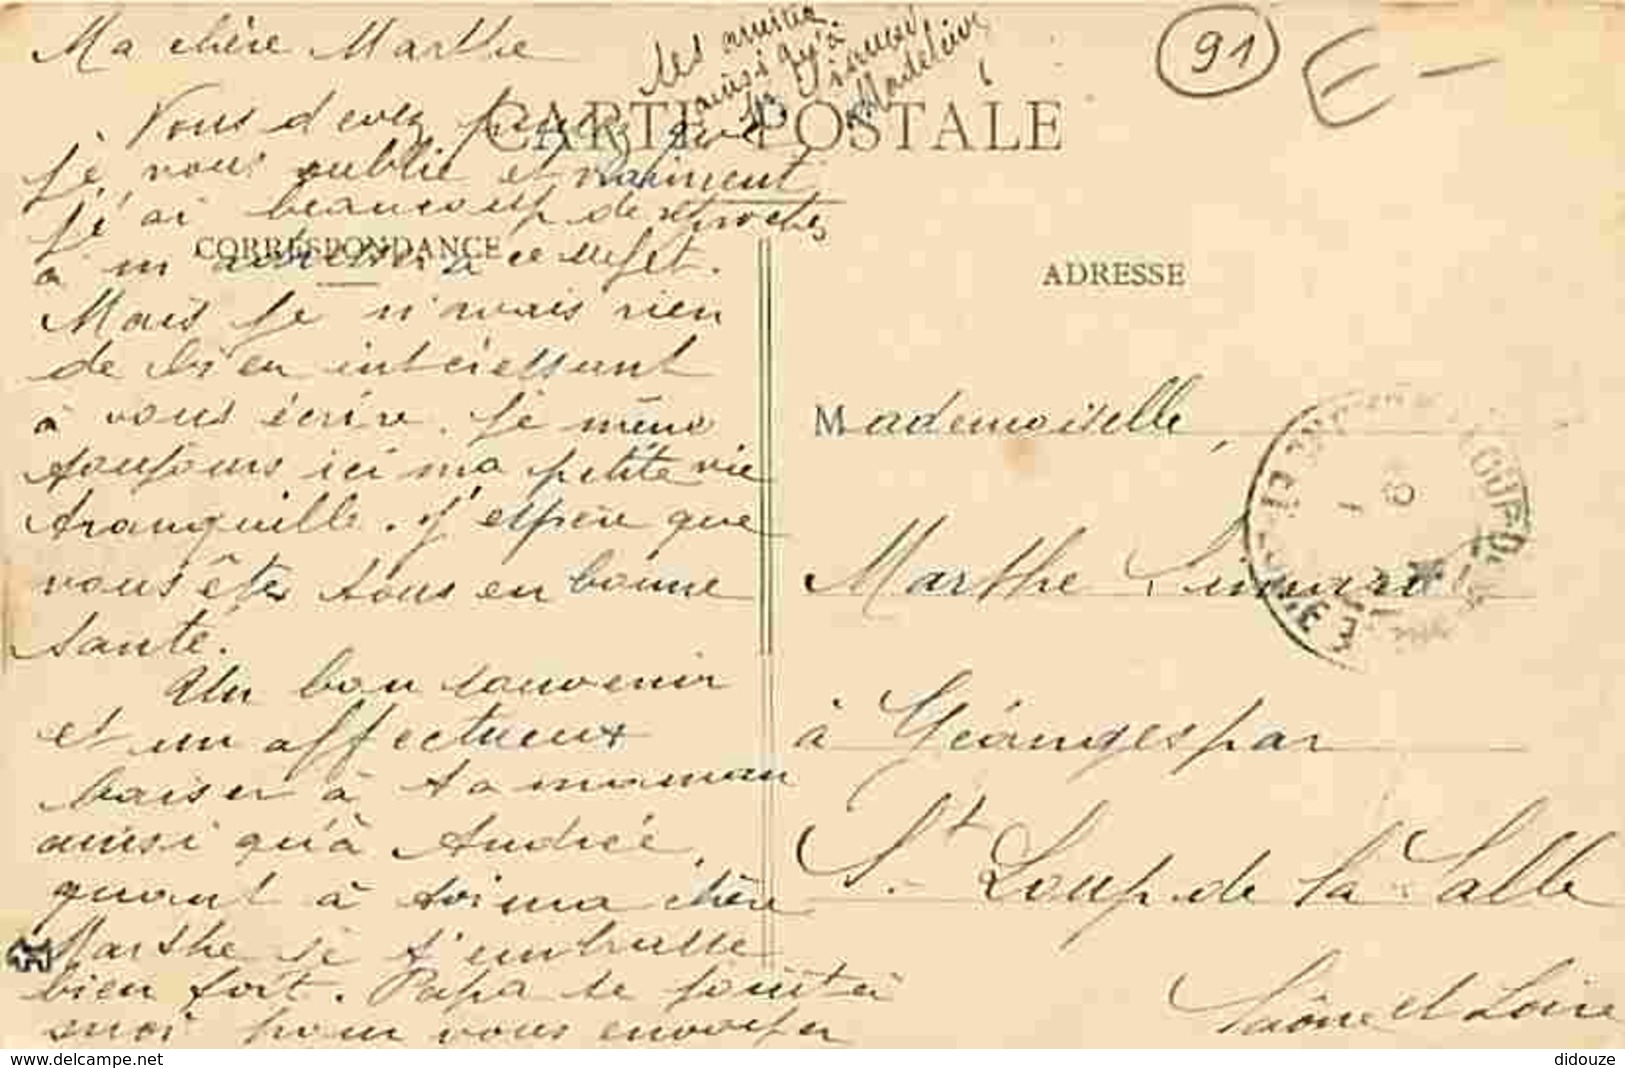 Ma chère Marthe
Vous devez penser que
je vous oublie et vraiment
j'ai beaucoup de reproches
à m'adresser à ce sujet.
Mais je n'avais rien
de bien intéressant
à vous écrire. Je mène
toujours ici ma petite vie
tranquille. J'espère que
vous êtes tous en bonne
santé.
Un bon souvenir
et un affectueux
baiser à ta maman
ainsi qu'à Andrée,
quant à toi ma chère
Marthe je t'embrasse
bien fort. Papa se joint à
moi pour vous envoyer
ses amitiés
ainsi qu'à
Madeleine
91
E-
CARTE POSTALE
CORRESPONDANCE
ADRESSE
Mademoiselle,
Marthe
à Géanges par
St Loup de la Salle
Saône et Loire
www.delcampe.net
didouze